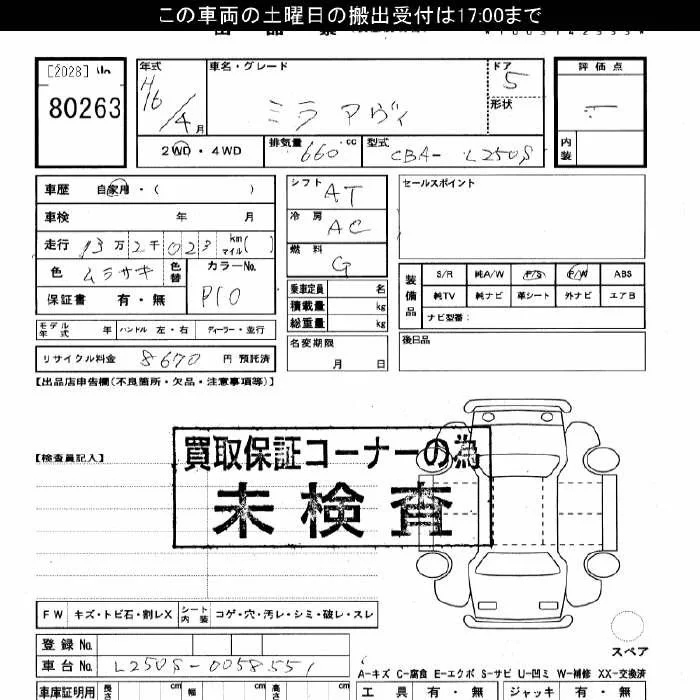 この車両の土曜日の搬出受付は17:00まで
[2028]
80263
年式
H16/4月
車名・グレード
ミラ アヴィ
ドア
5
形状
評価点
内装
2WD・4WD
排気量 660 cc
型式 CBA- L250S
車歴 自家用・( )
車検 年 月
走行 13万2千023 km マイル( )
色 ムラサキ 色替
カラーNo. P10
保証書 有・無
モデル年式 年 ハンドル 左・右 ディーラー・並行
リサイクル料金 8670 円 預託済
シフト AT
冷房 AC
燃料 G
乗車定員 名
積載量 kg
総重量 kg
名変期限
月 日
セールスポイント
装備品
S/R 純A/W P/S P/W ABS
純TV 純ナビ 革シート 外ナビ エアB
ナビ型番:
後日品
【出品店申告欄(不良箇所・欠品・注意事項等)】
【検査員記入】
買取保証コーナーの為
未検査
FW キズ・トビ石・割レX シート内装 コゲ・穴・汚レ・シミ・破レ・スレ
登録No.
車台No. L250S-0058551
スペア
A-キズ C-腐食 E-エクボ S-サビ U-凹ミ W-補修 XX-交換済
車庫証明用 長さ cm 幅 cm 高さ cm
工具 有・無 ジャッキ 有・無